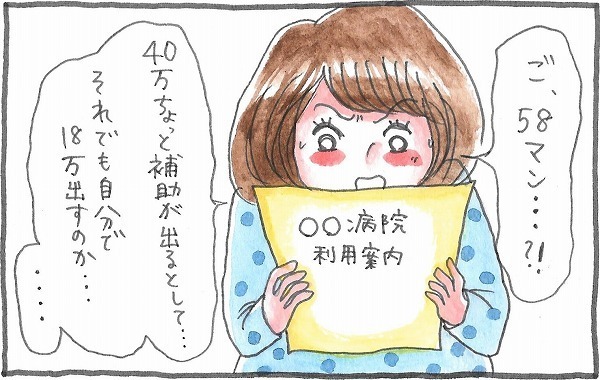 ご、
58マン・・・?!
〇〇病院
利用案内
40万ちょっと補助が出るとして・・・
それでも自分で
18万出すのか・・・
・・・・・